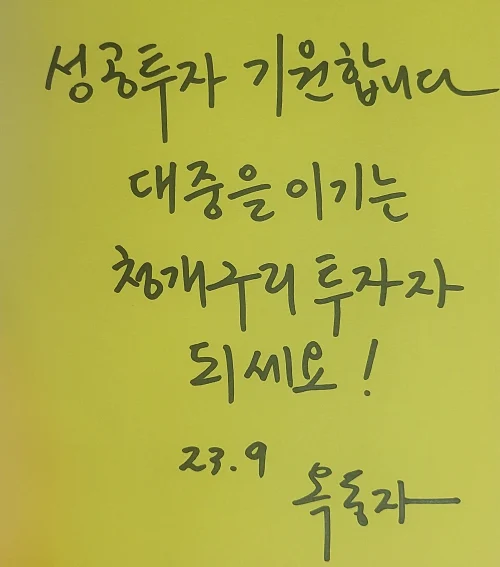 성공투자 기원합니다
대중을 이기는
청개구리 투자자
되세요!
23.9
옥동자